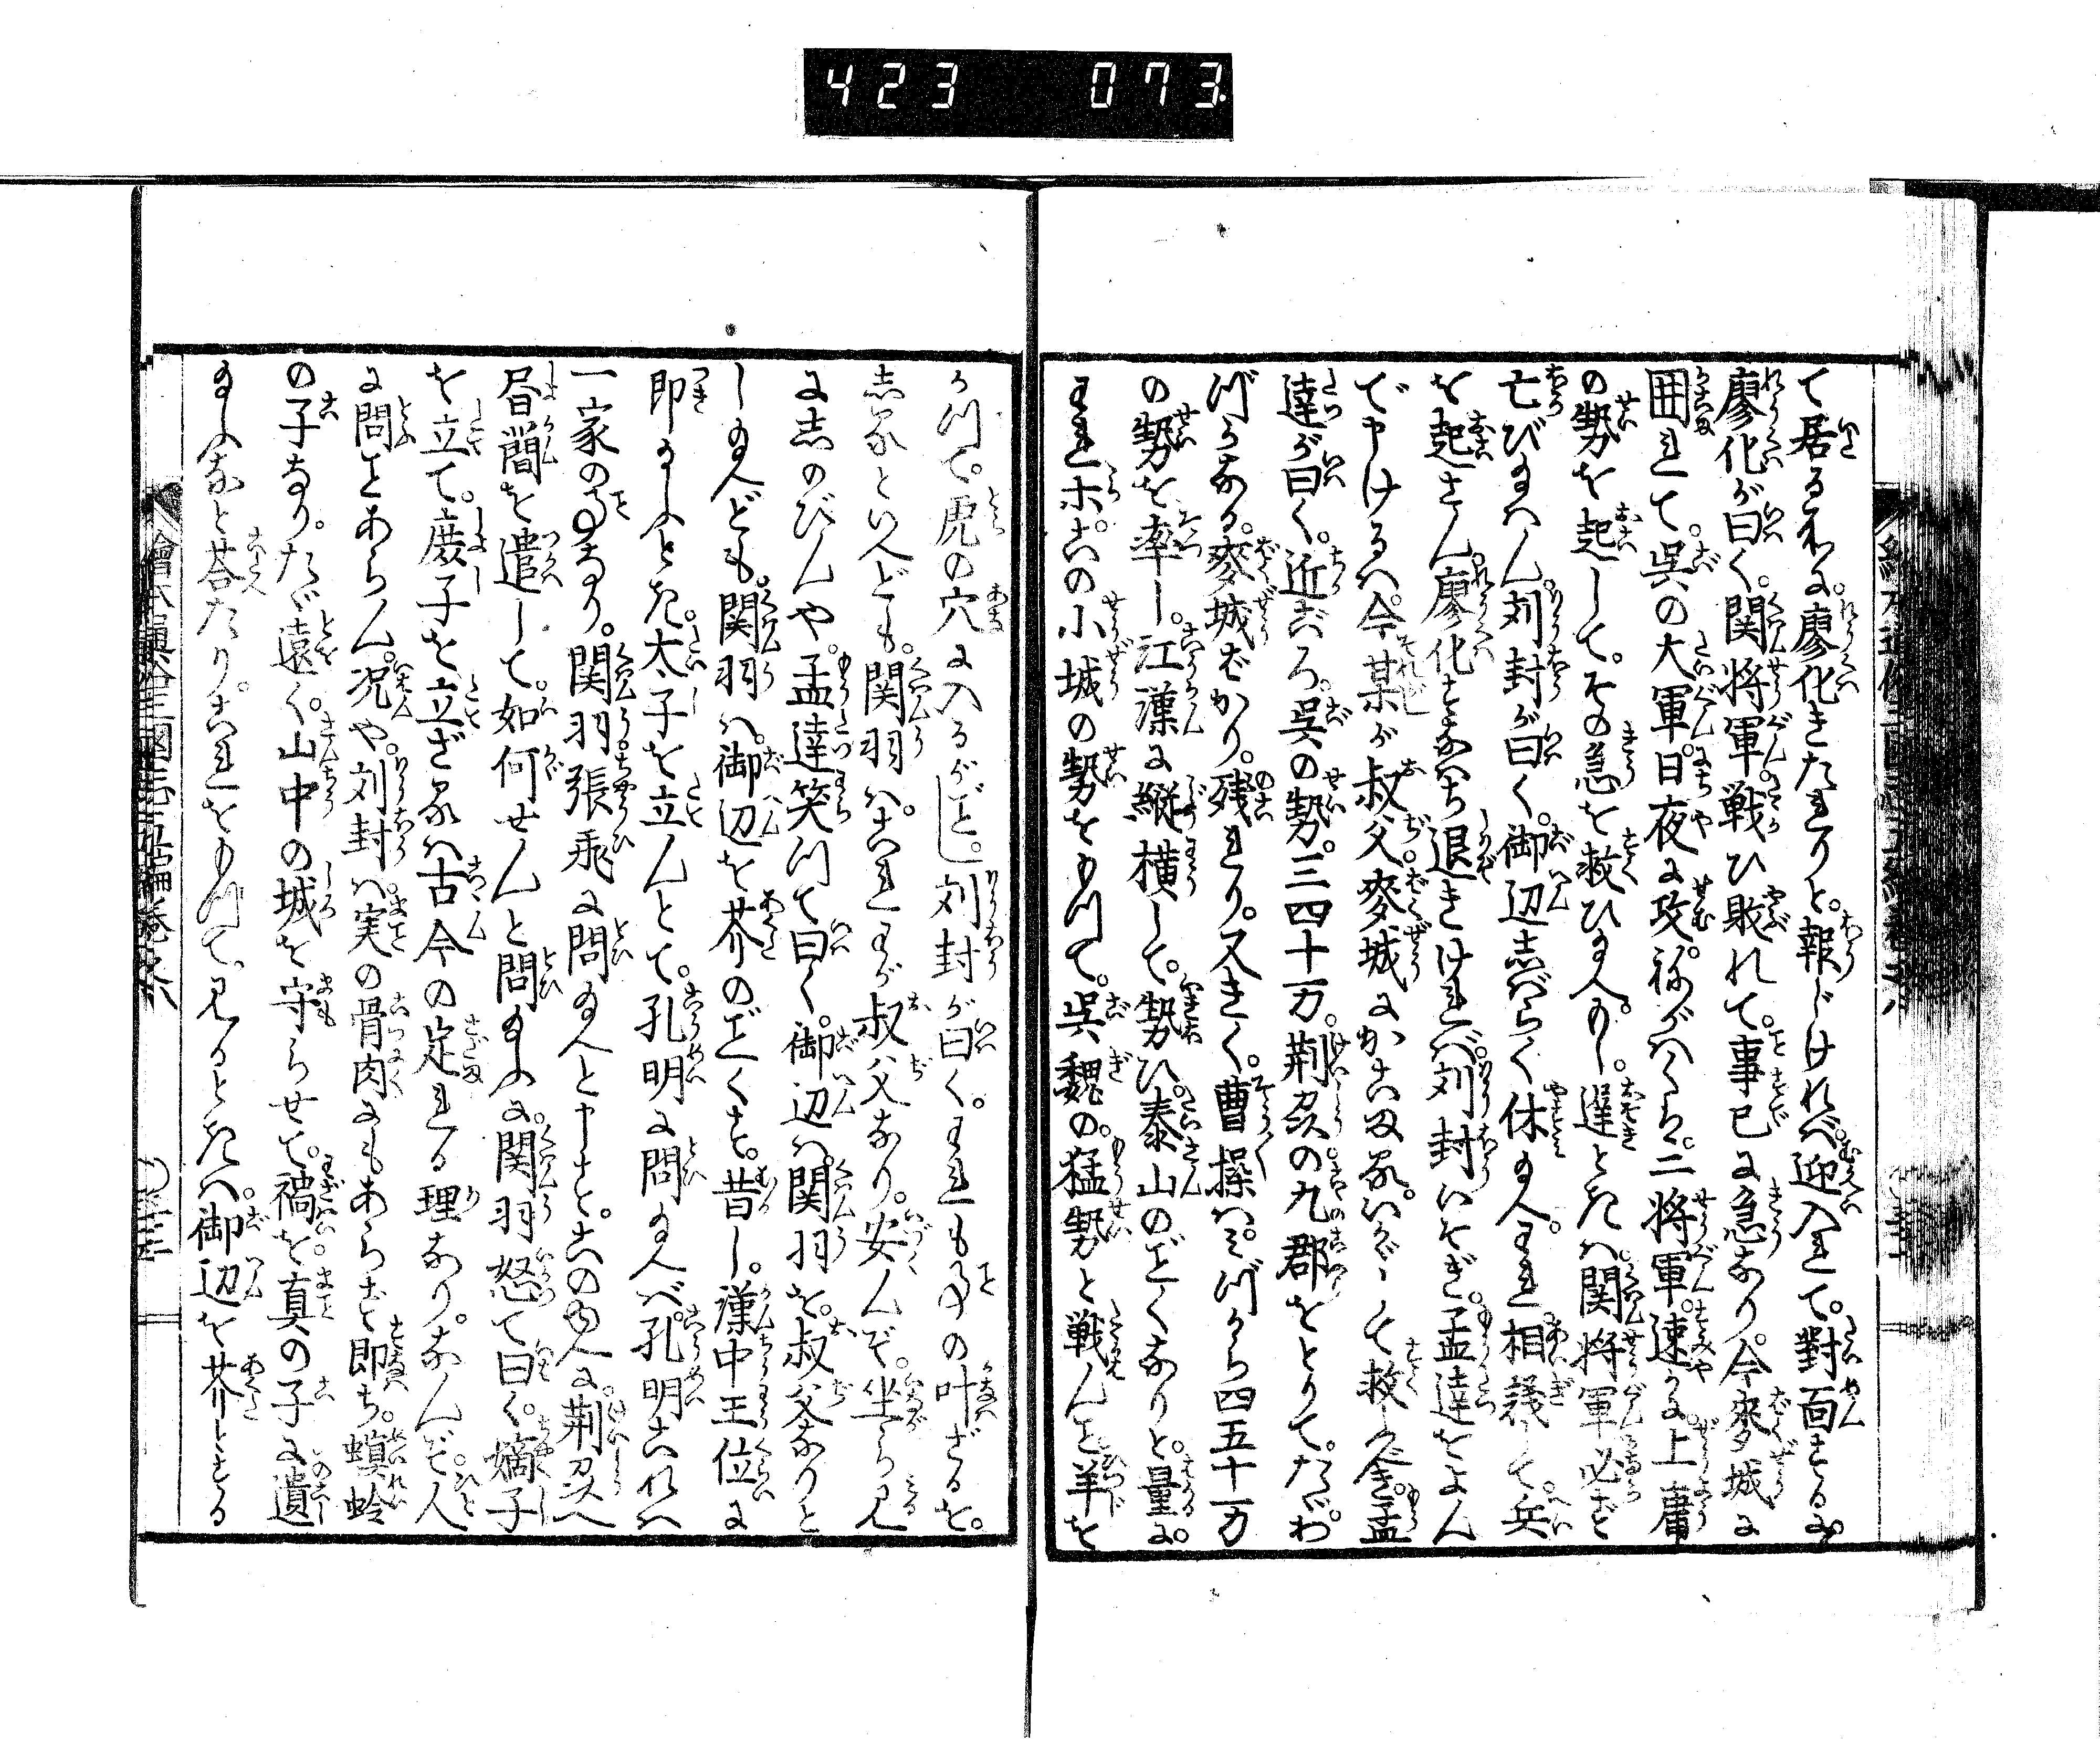 423 073.
て居る所に。廖化きたれりと。報じければ。迎入れて。對面するに。
廖化が曰く。関将軍。戦ひ敗れて。事已に急なり。今麥城に
囲れて。呉の大軍。日夜に攻。祢がはくは。二将軍。速かに。上庸
の勢を起して。その急を救ひ給へ。もし。遅ときは。関将軍必ず
亡び給はん。刘封が曰く。御辺志ばらく休給へ。われ相議して。兵
を起さん。廖化すなはち退きければ。刘封いそぎ。孟達をよん
で申けるは。今某が叔父。麥城にかこまる。いかゞして救ふべき。孟
達が曰く。近ごろ。呉の勢。三四十万。荆州の九郡をとりて。たゞわ
づかなる。麥城ばかり。残れり。又きく。曹操は。みづから四五十万
の勢を率し。江漢に縦横して。勢ひ。泰山のごとくなりと。量に。
われホ。この小城の勢をもつて。呉魏の。猛勢と戦んこと羊を
かつて。虎の穴に入るがごとし。刘封が曰く。われも事の叶ざるを。
志るといへども。関羽は。これわが叔父なり。安んぞ。坐ら見
に志のびんや。孟達笑つて曰く。御辺は。関羽を。叔父なりと
し給へども。関羽は。御辺を芥のごとくす。昔し。漢中王位に
即給ふとき。太子を立んとて。孔明に問給へば。孔明これは
一家の事なり。関羽。張飛に問給へと申す。この由へに。荆州へ
眉間を遣して。如何せんと問給ふに。関羽怒て曰く。嫡子
を立て。庶子を立ざるは古今の定れる理なり。なんぞ。人
に問ことあらん。况や。刘封は。実の骨肉にもあらず。即ち。螟蛉
の子なり。たゞ遠く。山中の城を守らせて。禍を。真の子に遺
給ふなと答たり。これをもつて。見るときは。御辺を芥とする